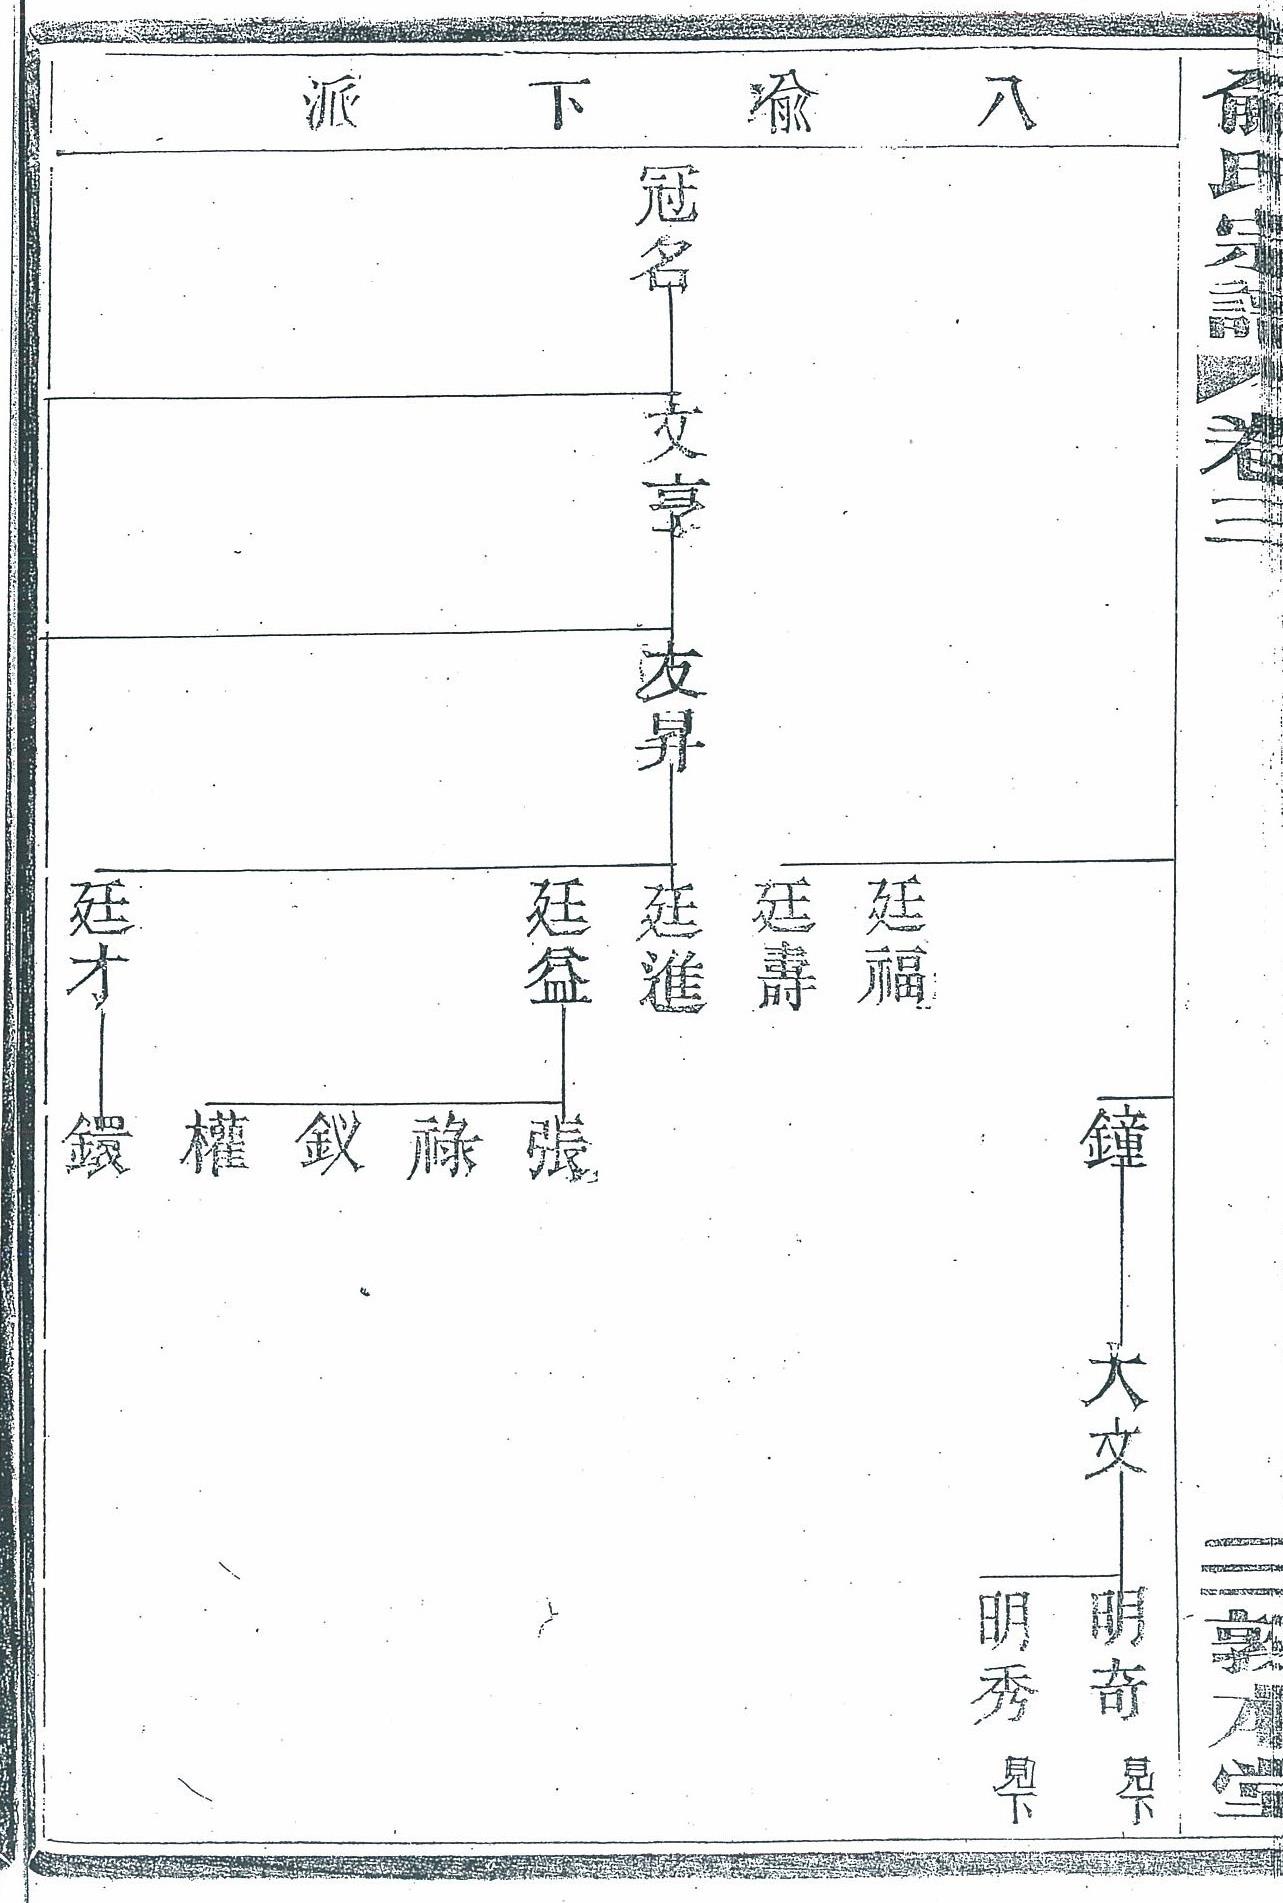 俞氏宗譜 卷三
敦本堂
八喻下派
冠名
文亨
友昇
廷福
廷壽
廷進
廷益
廷才
鐘
張
祿
釵
權
鐶
大文
明奇 見下
明秀 見下